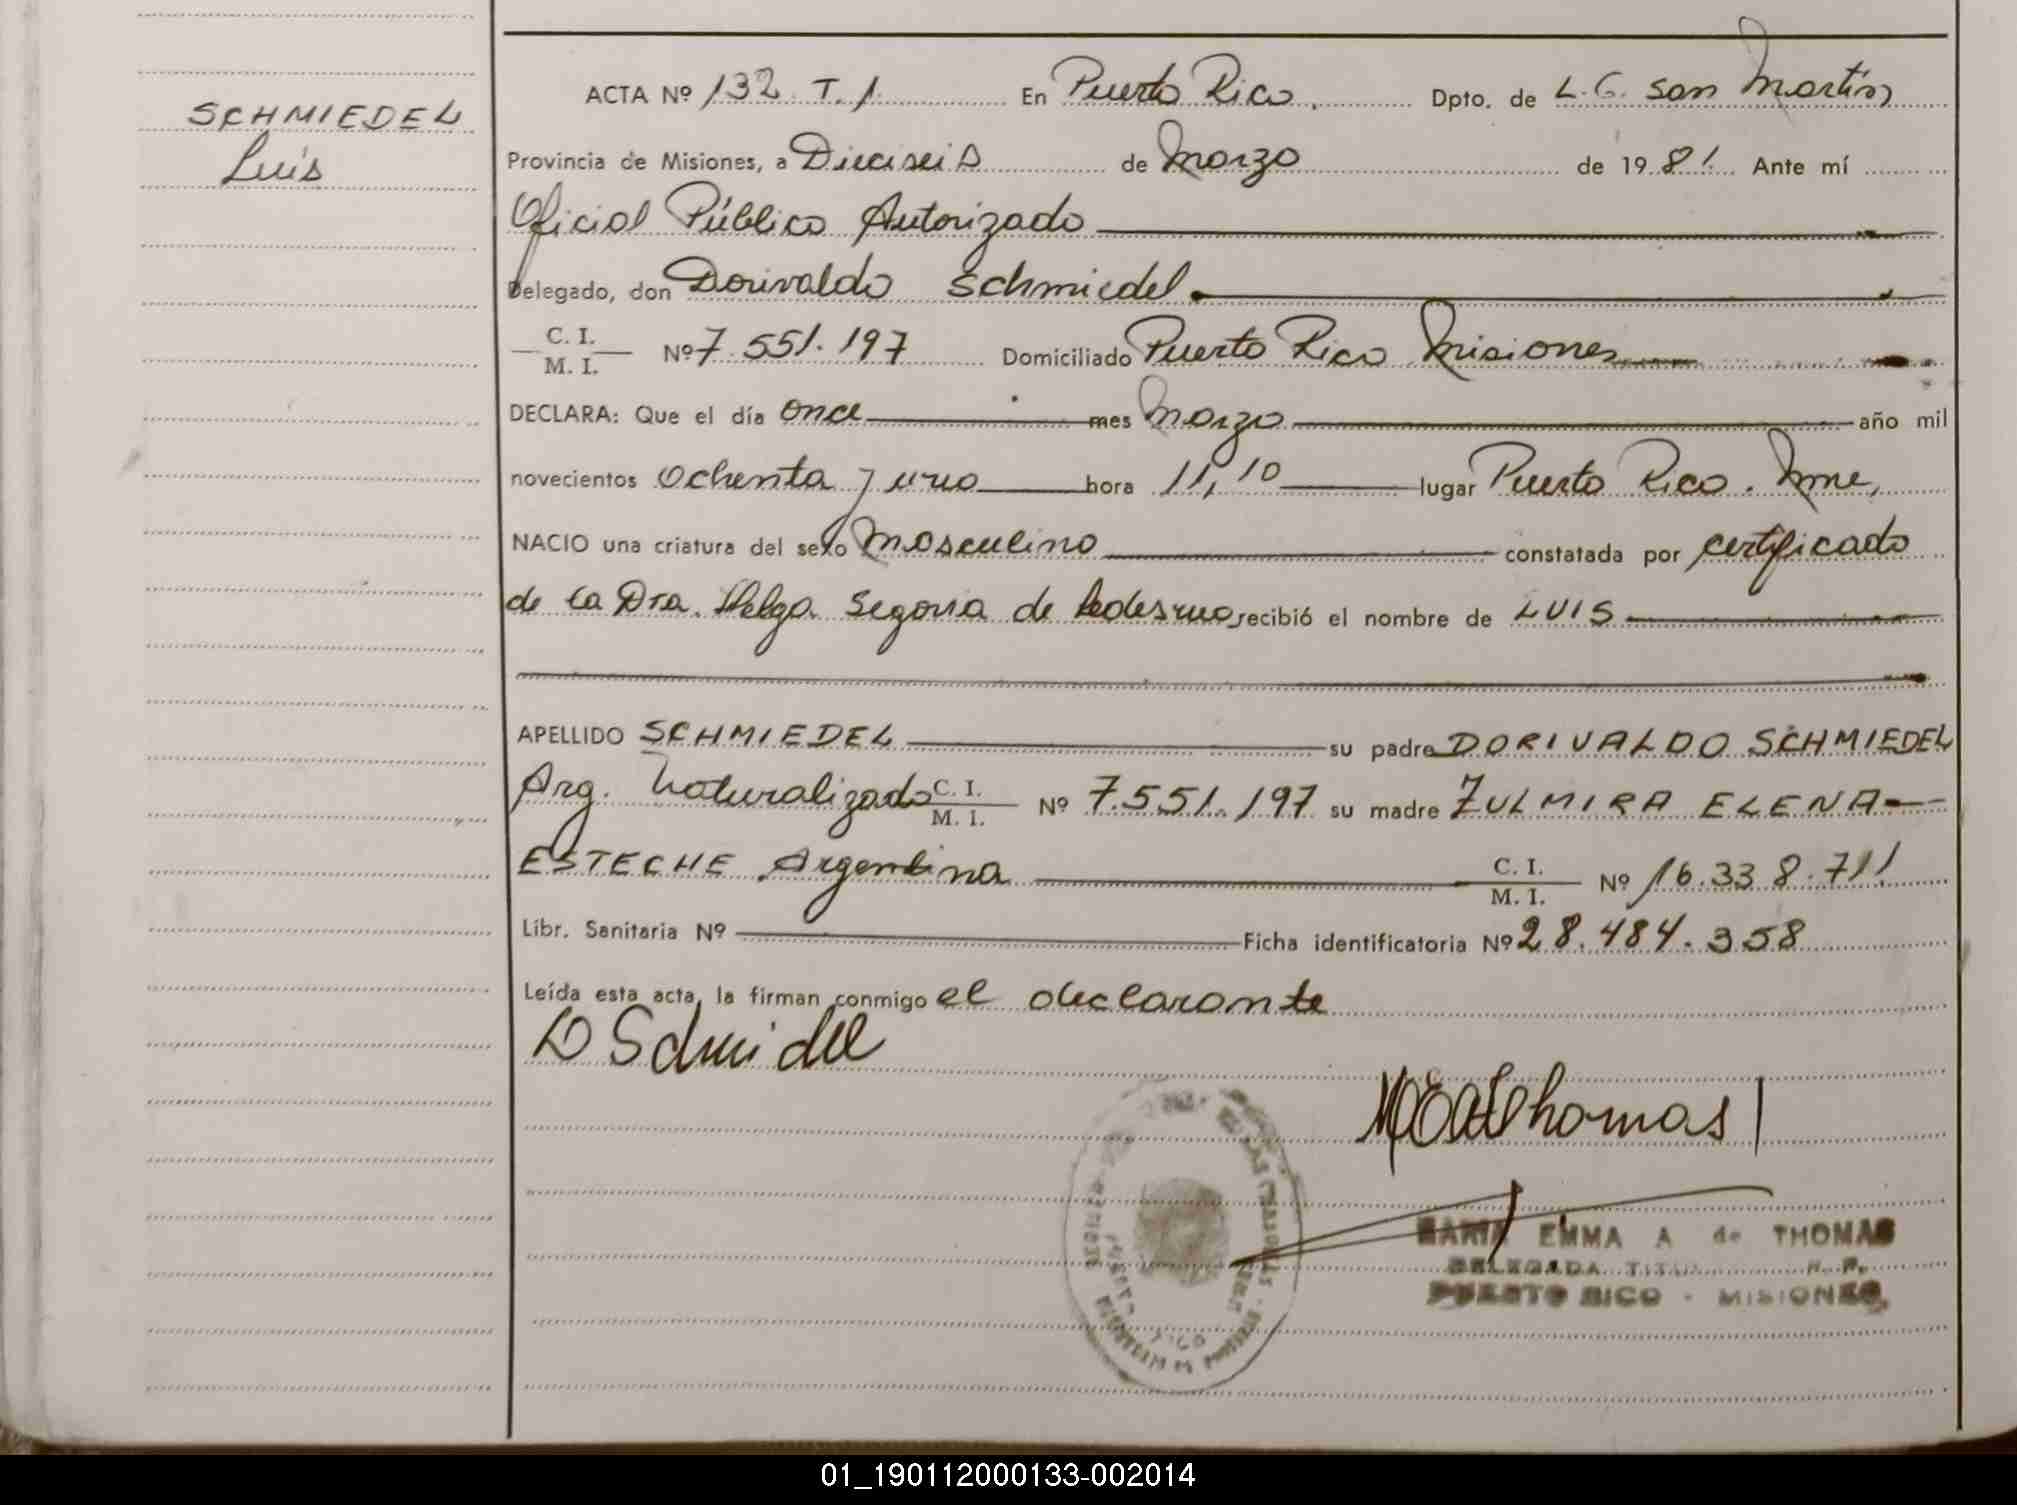 SCHMIEDEL
Luis
ACTA Nº 132 T. 1 En Puerto Rico. Dpto. de L. G. San Martín
Provincia de Misiones, a Dieciseis de Marzo de 1981. Ante mí
Oficial Público Autorizado
Delegado, don Dorivaldo Schmiedel.
C. I. / M. I. Nº 7.551.197 Domiciliado Puerto Rico Misiones
DECLARA: Que el día once mes Marzo año mil
novecientos ochenta y uno hora 11,10 lugar Puerto Rico. Mnes,
NACIO una criatura del sexo Masculino constatada por certificado
de la Dra. Helga Segovia de Ledesma, recibió el nombre de LUIS
APELLIDO SCHMIEDEL su padre DORIVALDO SCHMIEDEL
Arg. Naturalizado C. I. / M. I. Nº 7.551.197 su madre ZULMIRA ELENA
ESTECHE Argentina C. I. / M. I. Nº 16.338.711
Libr. Sanitaria Nº Ficha identificatoria Nº 28.484.358
Leída esta acta, la firman conmigo el declarante
D Schmidel
Thomas
MARIA EMMA A de THOMAS
DELEGADA TITULAR R. P.
PUERTO RICO - MISIONES
01_190112000133-002014